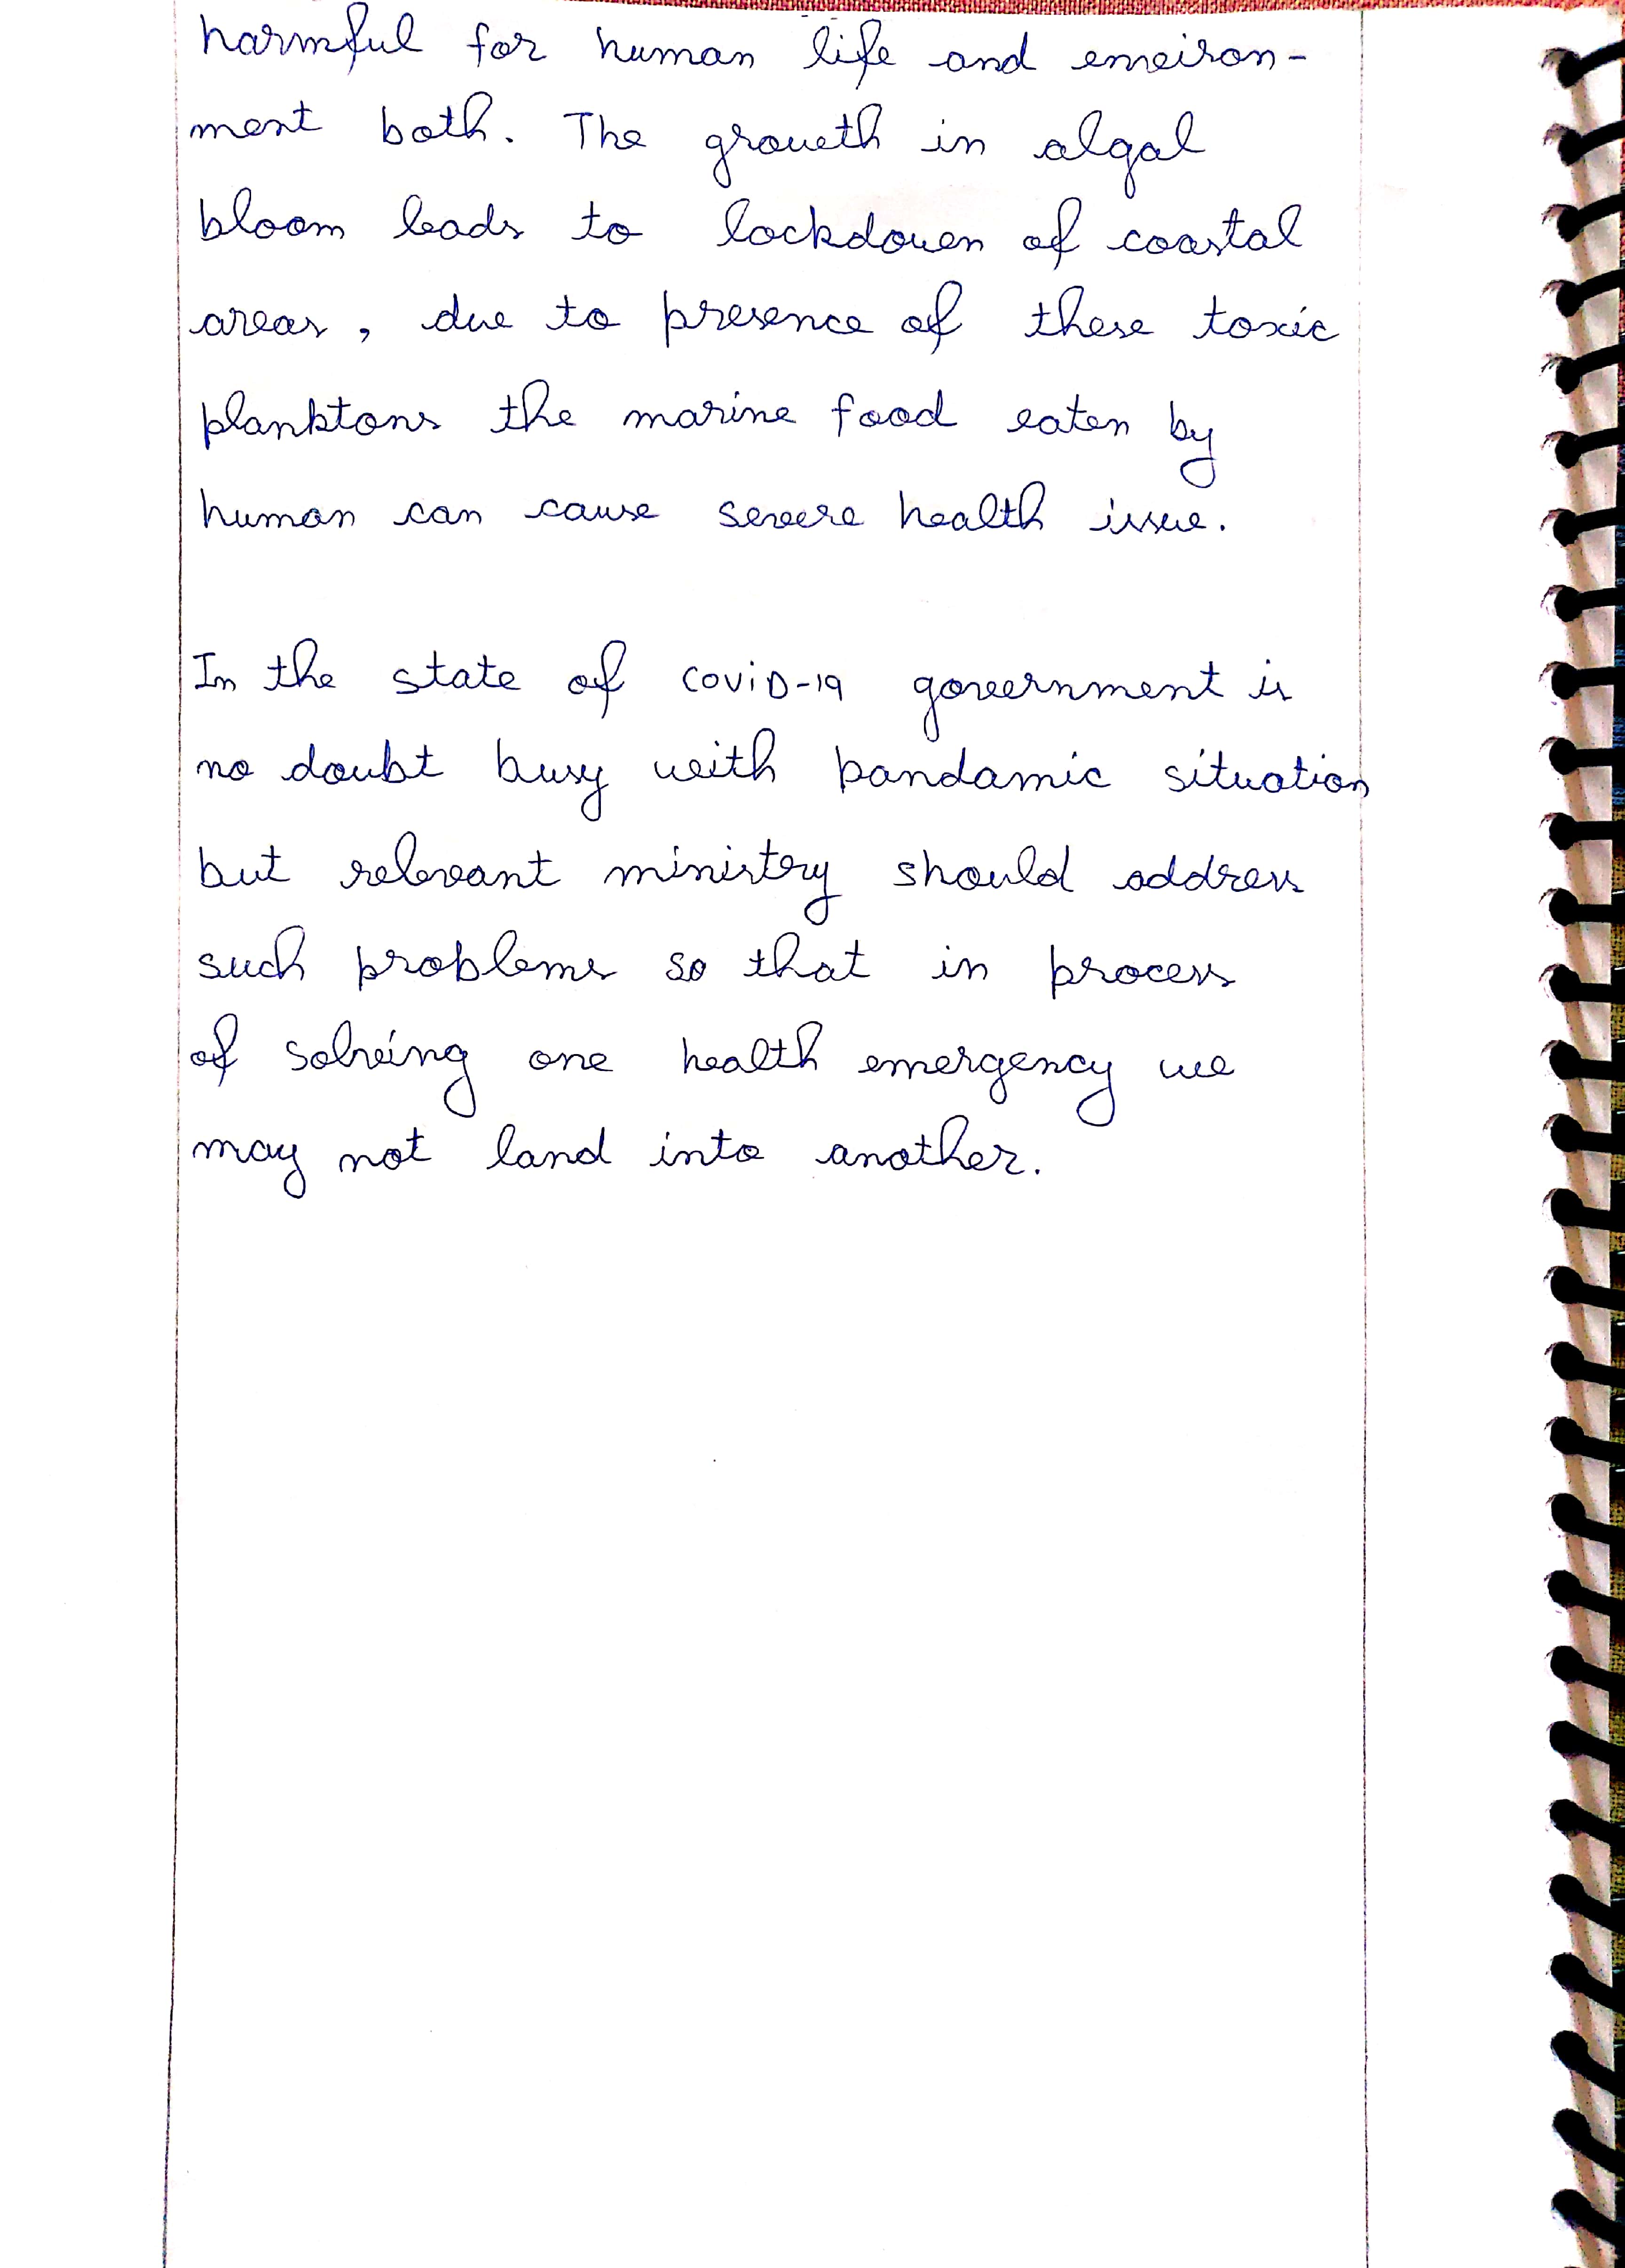 harmful for human life and environ-
ment both. The growth in algal
bloom leads to lockdown of coastal
areas, due to presence of these toxic
planktons the marine food eaten by
human can cause severe health issue.
In the state of COVID-19 government is
no doubt busy with pandamic situation
but relevant ministry should address
such problems so that in process
of solving one health emergency we
may not land into another.